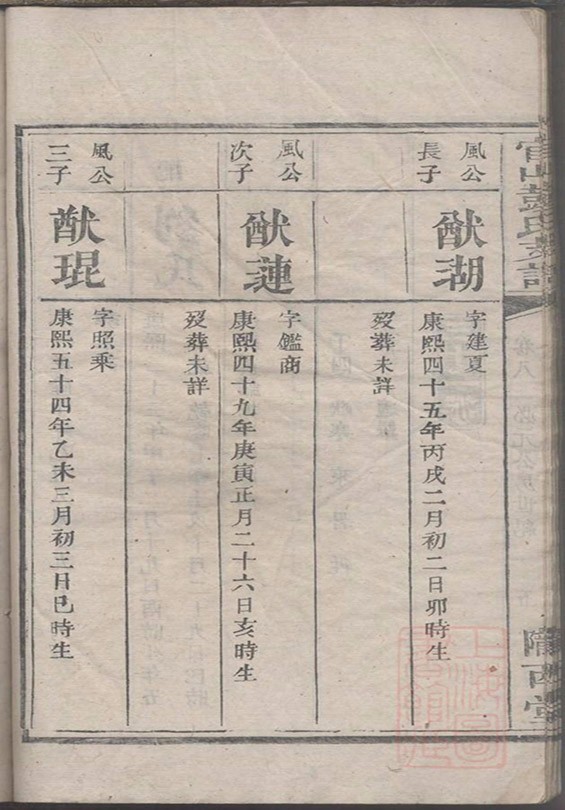 官山彭氏族譜
卷八
隴西堂
風公
長子
猷瑚
字建夏
康熙四十五年丙戌二月初二日卯時生
歿葬未詳
風公
次子
猷璉
字鑑商
康熙四十九年庚寅正月二十六日亥時生
歿葬未詳
風公
三子
猷琨
字照乘
康熙五十四年乙未三月初三日巳時生